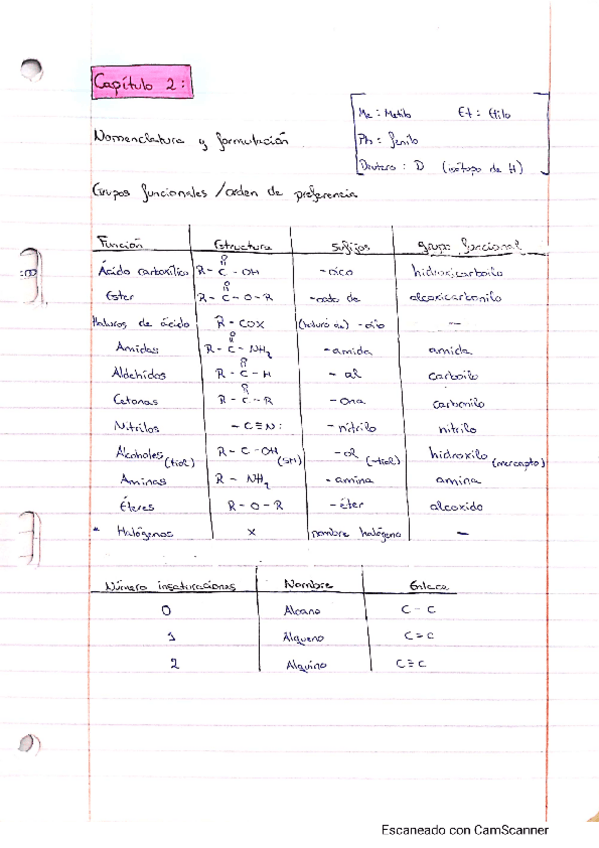 Capítulo 2:
Me : Metilo Et : Etilo
Ph : fenilo
Deuterio : D (isótopo de H)
Nomenclatura y formulación
Grupos funcionales / orden de preferencia
Función Estructura Sufijos grupo funcional
Ácido carboxílico R - C - OH -oico hidroxicarbonilo
O
Ester R - C - O - R -oato de alcoxicarbonilo
O
Haluros de ácido R - COX (haluro de) -oilo —
Amidas R - C - NH2 -amida amida
O
Aldehidos R - C - H - al carboilo
O
Cetonas R - C - R -ona carbonilo
O
Nitrilos - C≡N: -nitrilo nitrilo
Alcoholes (tiol) R - C - OH (SH) -ol (-tiol) hidroxilo (mercapto)
Aminas R - NH2 -amina amina
Éteres R - O - R -éter alcoxido
Halógenos X nombre halógeno —
Número insaturaciones Nombre Enlace
0 Alcano C - C
1 Alqueno C = C
2 Alquino C ≡ C
Escaneado con CamScanner